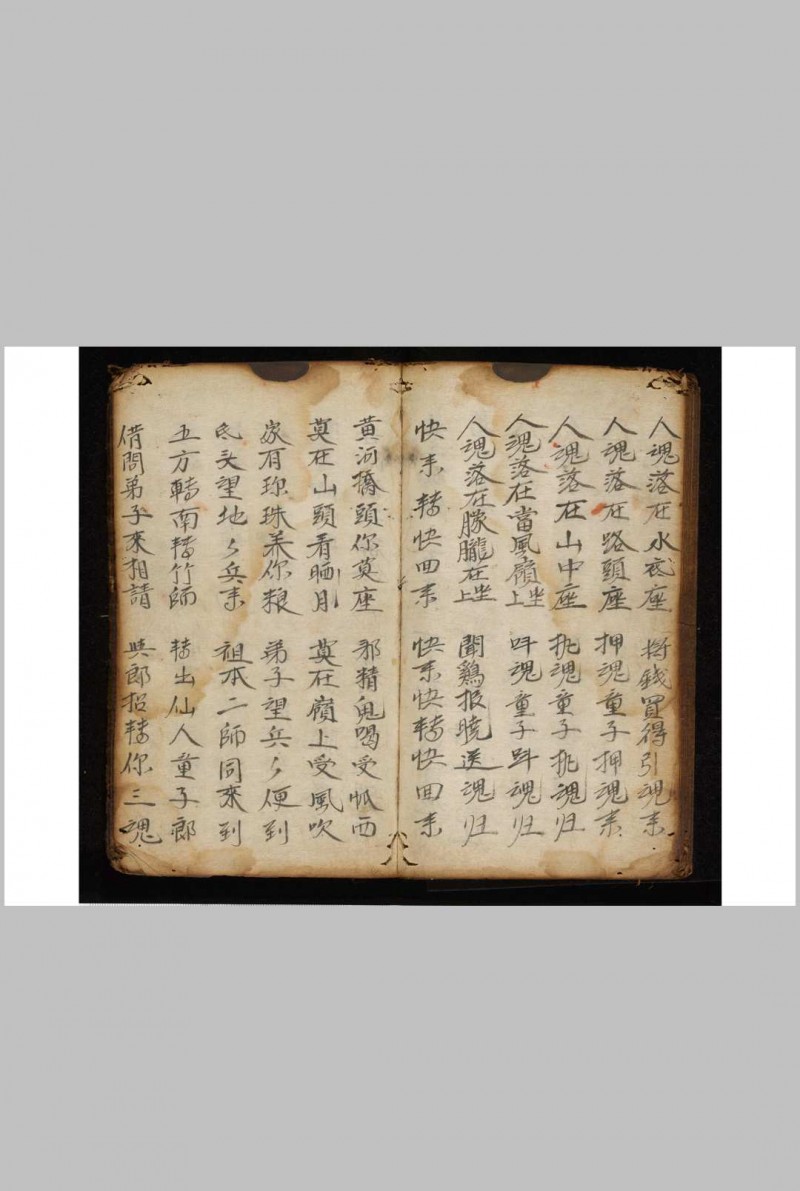 人魂落在水底座 将錢買得引魂来
人魂落在路頭座 押魂童子押魂来
人魂落在山中座 挑魂童子挑魂归
人魂落在當風嶺上坐 呌魂童子呌魂归
人魂落在朦朧在上坐 聞鷄报曉送魂归
快来转快回来 快来快转快回来
黄河橋頭你莫座 邪精鬼喝受
莫在山頭看晒月 莫在嶺上受風吹
家有珎珠养你粮 弟子望兵々便到
头望地々兵来 祖本二師同來到
五方轉南转竹師 转出仙人童子郎
借問弟子來相請 與郎招转你三魂